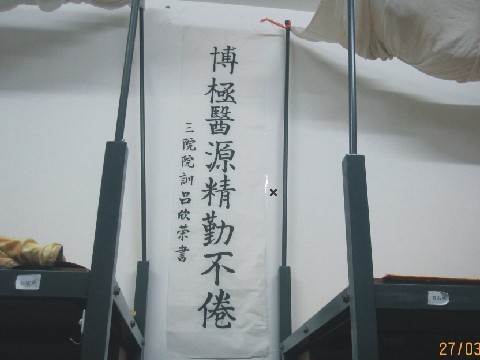 博極醫源精勤不倦
三院院訓呂欣榮書
27/03